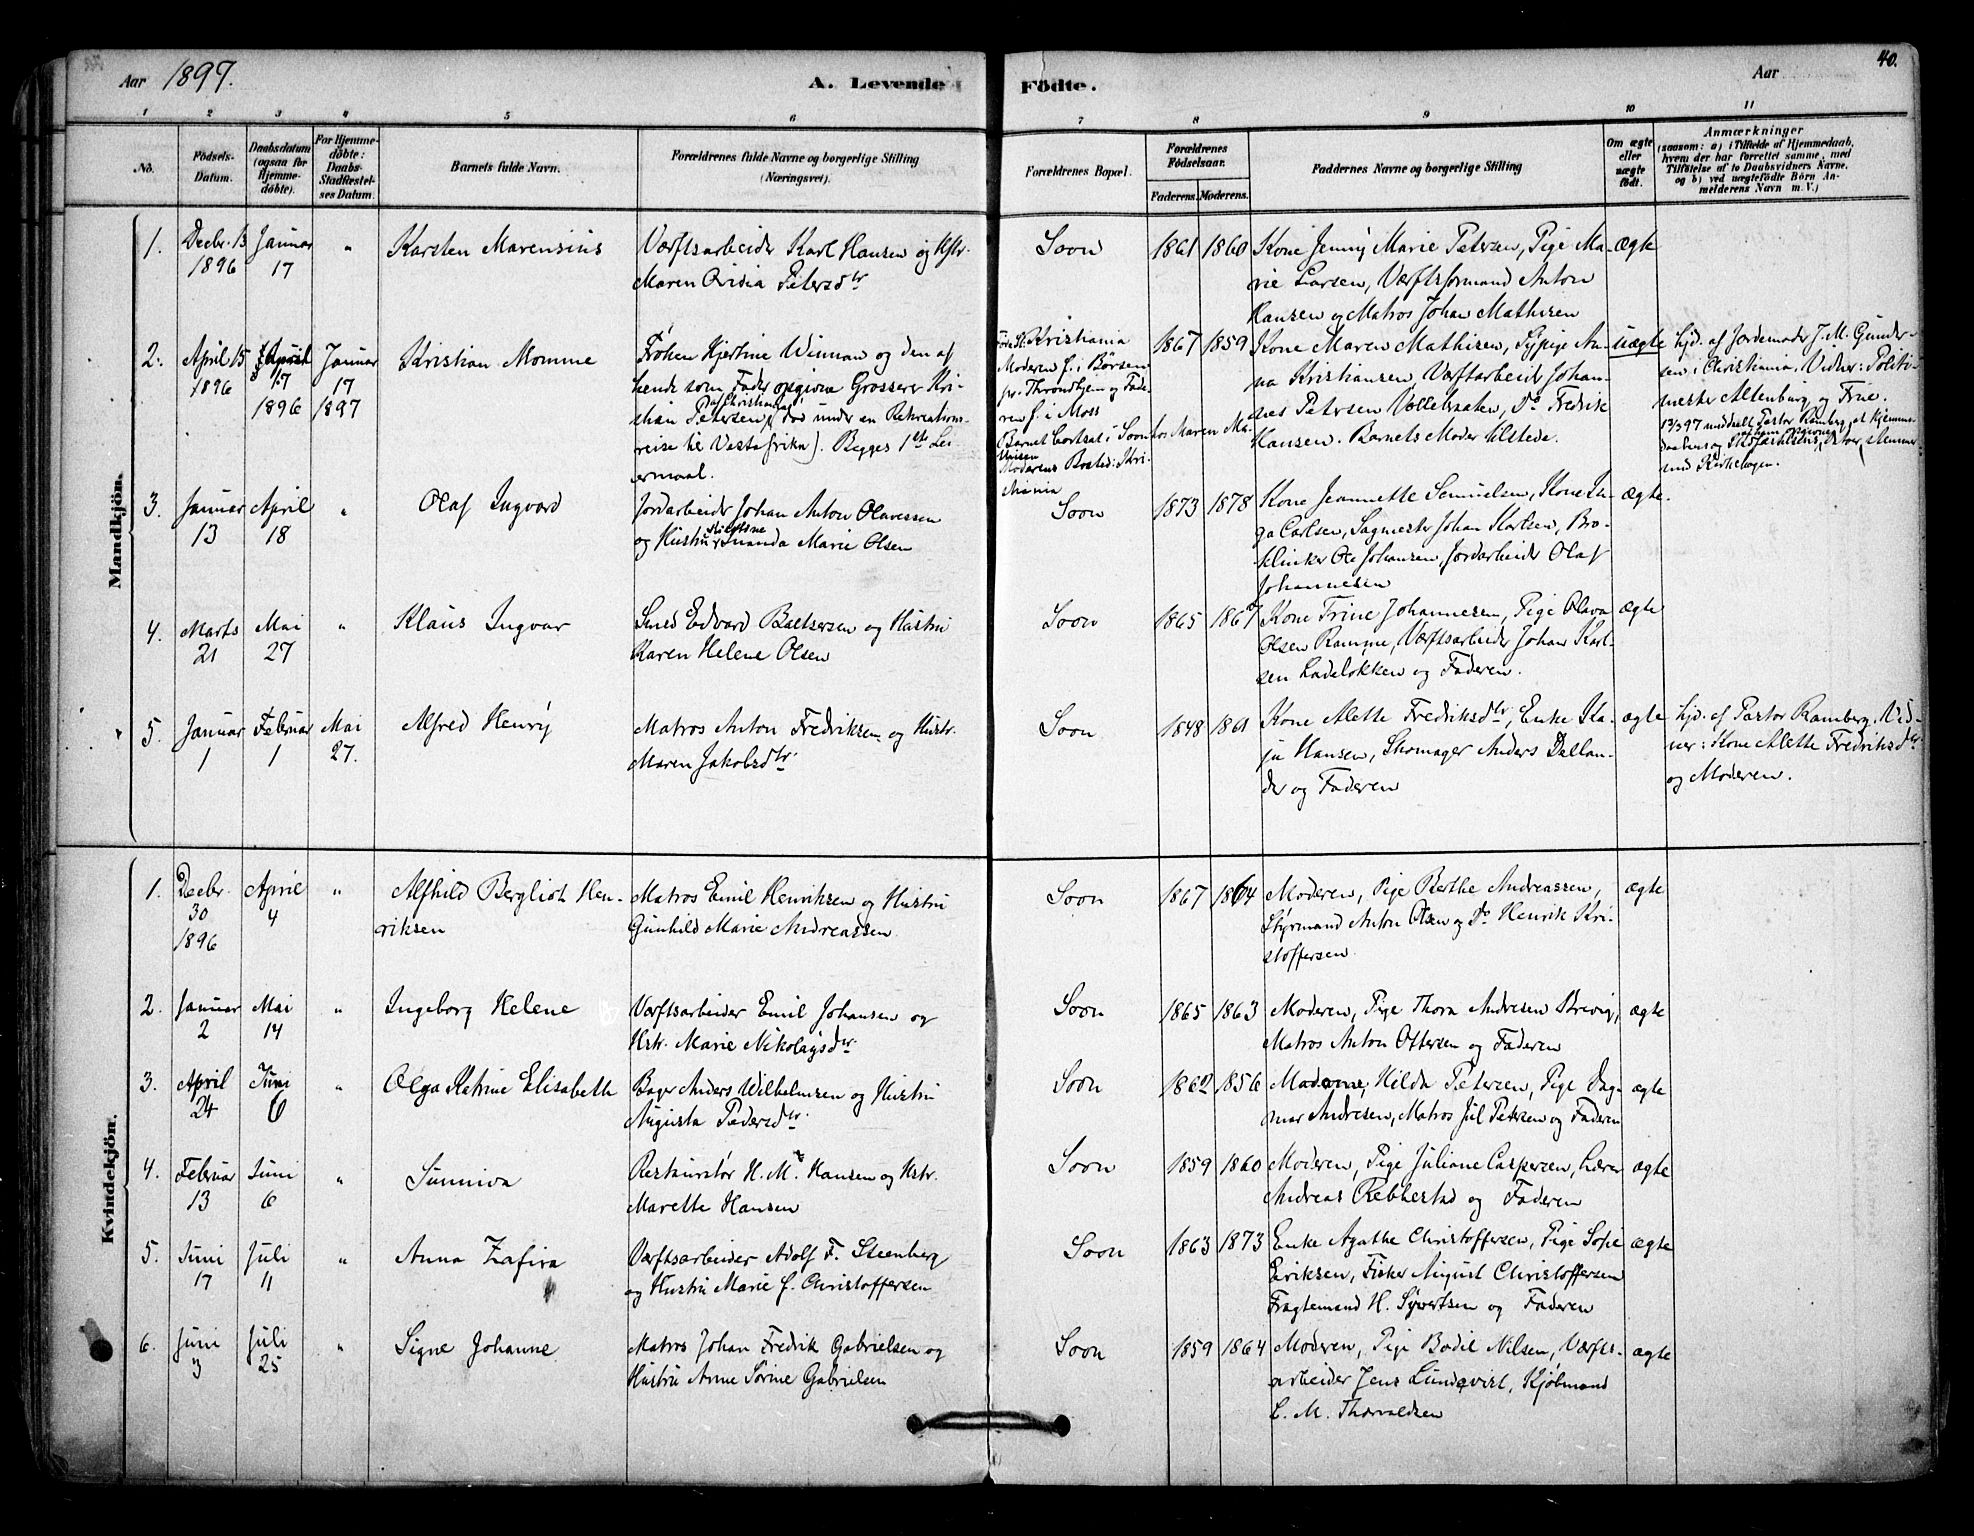 Aar 1897.
A. Levende Födte.
Aar
40.
1 2 3 4 5 6 7 8 9 10 11
No.
Födsels-Datum.
Daabsdatum (ogsaa for Hjemmedöbte).
For Hjemmedöbte: Daabs-Stadfæstelses Datum.
Barnets fulde Navn.
Forældrenes fulde Navne og borgerlige Stilling (Næringsvei).
Forældrenes Bopæl.
Forældrenes Födselsaar.
Faderens. Moderens.
Faddernes Navne og borgerlige Stilling
Om ægte eller uægte födt.
Anmærkninger
(saasom: a) i Tilfælde af Hjemmedaab,
hvem der har forrettet samme, med
Tilföielse af to Daabsvidners Navne,
og b) ved uægtefödte Börn An-
melderens Navn m. V.)
Mandkjön.
1. Decbr. 13 1896
Januar 17
"
Karsten Marensius
Værftsarbeider Karl Hansen og Hstr.
Maren Ovidia Petersdtr
Soon
1861 1860
Kone Jenny Marie Petersen, Pige Ma-
rie Larsen, Værftsformand Anton
Hansen og Matros Johan Mathisen
ægte
2. April 15 1896
April 17 1896
Januar 17 1897
Kristian Momme
Frøken Hjertine Winnan og den af
hende som Fader opgivne Grosserer Kri-
stian Petersen af Christiania (død under en Rekreations-
reise til Vestafrika). Begges 1ste Lei-
ermaal.
Kristiania
Moderen f. i Børsen
pr. Throndhjem og Fade-
ren f. i Moss
Barnet bortsat i Soon hos Maren Ma-
thisen
Moderens Bosted: Kri-
stiania
1867 1859
Kone Maren Mathisen, Sypige An-
na Kristiansen, Værftarbeid. Johan-
nes Petersen Vollebraaten, Do Fredrik
Hansen. Barnets Moder tilstede.
uægte
hjd. af Jordemoder J. M. Gunder-
sen i Christiania, Vidner: Politi-
mester Altenburg og Frue.
13/3 97 meddelt Pastor Ramberg, at Hjemme-
daaben og
med Kirkebogen.
3. Januar 13
April 18
"
Olaf Ingvard
Jordarbeider Johan Anton Olavessen
og Hustru Marie Olsen
Soon
1873 1878
Kone Jeannette Semuelsen, Kone In-
ga Carlsen, Sagmester Johan Karlsen, Bro-
klinker Ole Johansen, Jordarbeider Olaf
Johannesen
ægte.
4. Marts 21
Mai 27
"
Klaus Ingvar
Smed Edvard Baltsersen og Hustru
Karen Helene Olsen
Soon
1865 1867
Kone Trine Johannesen, Pige Olava
Olsen Ramme, Værftsarbeider Johan Karl-
sen Ladeløkken og Faderen.
ægte
5. Januar 1
Februar 1
Mai 27.
Alfred Henry
Matros Anton Fredriksen og Hustr.
Maren Jakobsdtr.
Soon
1848 1861
Kone Alette Fredriksdtr, Enke Ka-
ja Hansen, Skomager Anders Dellan-
der og Faderen
ægte
hjd. af Pastor Ramberg. Vid-
ner: Kone Alette Fredriksdtr.
og Moderen.
Kvindekjön.
1. Decbr. 30 1896
April 4
"
Alfhild Bergliot Hen-
riksen
Matros Emil Henriksen og Hustru
Gunhild Marie Andreassen
Soon
1867 1864
Moderen, Pige Berthe Andreassen,
Styrmand Anton Olsen og Do Henrik Kri-
stoffersen.
ægte
2. Januar 2
Mai 14
"
Ingeborg Helene
Værftsarbeider Emil Johansen og
Hstr. Marie Nikolaysdtr.
Soon
1865 1863
Moderen, Pige Thora Andresen Brevig,
Matros Anton Ottersen og Faderen
ægte
3. April 24
Juni 6
"
Olga Katrine Elisabeth
Bager Anders Wilhelmsen og Hustru
Augusta Pedersdtr.
Soon
1862 1856
Madame Hilda Petersen, Pige Dag-
mar Andresen, Matros Jul Petersen og Faderen
ægte
4. Februar 13
Juni 6
"
Sunniva
Restauratør H. M. Hansen og Hstr.
Marette Hansen
Soon
1859 1860
Moderen, Pige Juliane Caspersen, Lærer
Andreas Rebbestad og Faderen
ægte
5. Juni 17
Juli 11
"
Anna Zafira
Værftsarbeider Adolf F. Steenberg
og Hustru Marie J. Christoffersen
Soon
1863 1873
Enke Agathe Christoffersen, Pige Sofie
Eriksen, Fisker August Christoffersen
Fragtemand H. Syvertsen og Faderen
ægte
6. Juni 3
Juli 25
"
Signe Johanne
Matros Johan Fredrik Gabrielsen og
Hustru Anne Sørine Gabrielsen
Soon
1859 1864
Moderen, Pige Bodil Nilsen, Værfts-
arbeider Jens Lundqvist, Kjøbmand
L. M. Thorvaldsen
ægte